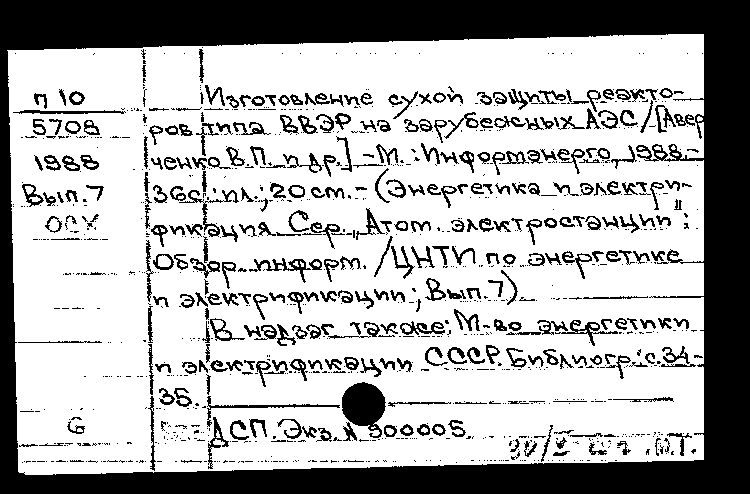 П 10
5708
1988
Вып.7
ОСХ
Изготовление сухой защиты реакто-
ров типа ВВЭР на зарубежных АЭС / [Авер
ченко В.П. и др.] - М. : Информэнерго, 1988.-
36с. : ил.; 20 см. - (Энергетика и электри-
фикация. Сер. „Атом. электростанции" :
Обзор. информ. / ЦНТИ по энергетике
и электрификации; Вып. 7)
В надзаг также: М-во энергетики
и электрификации СССР. Библиогр.: с.34-
35.
G
ДСП. Экз. N 900005